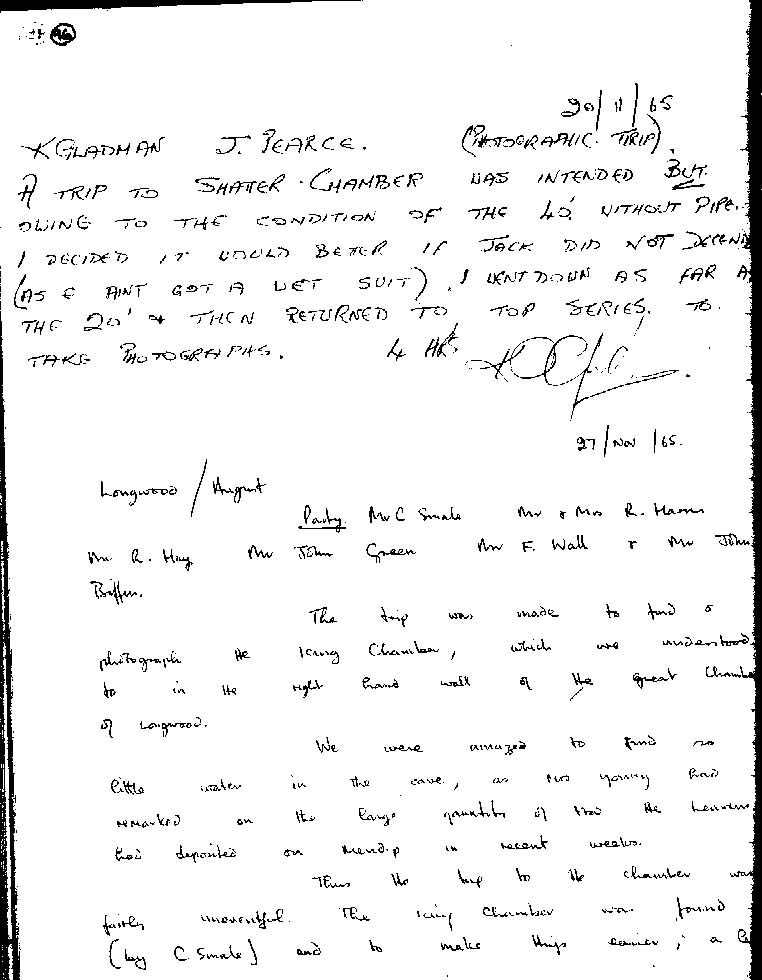 96
20/11/65
K GLADMAN J. PEARCE. (PHOTOGRAPHIC. TRIP).
A TRIP TO SHATTER. CHAMBER WAS INTENDED BUT.
OWING TO THE CONDITION OF THE 40' WITHOUT PIPE.
I DECIDED IT WOULD BETER IF JACK DID NOT DECEND
(AS E AINT GOT A WET SUIT). I WENT DOWN AS FAR A
THE 20' & THEN RETURNED TO TOP SERIES. TO.
TAKE PHOTOGRAPHS. 4 HRS
27/Nov/65.
Longwood / August
Party. Mr C Smale Mr & Mrs R. Harris
Mr R. Hay Mr John Green Mr F. Wall & Mr John
Biffen.
The trip was made to find &
photograph the Icing Chamber, which we understood
to in the right hand wall of the great Chambe
of Longwood.
We were amazed to find so
little water in the cave, as Mrs Young had
remarked on the large quantity of the Heavens
had deposited on Mendip in recent weeks.
Thus the trip to the chamber was
fairly uneventful. The icing Chamber was found
(by C Smale) and to make things easier, a